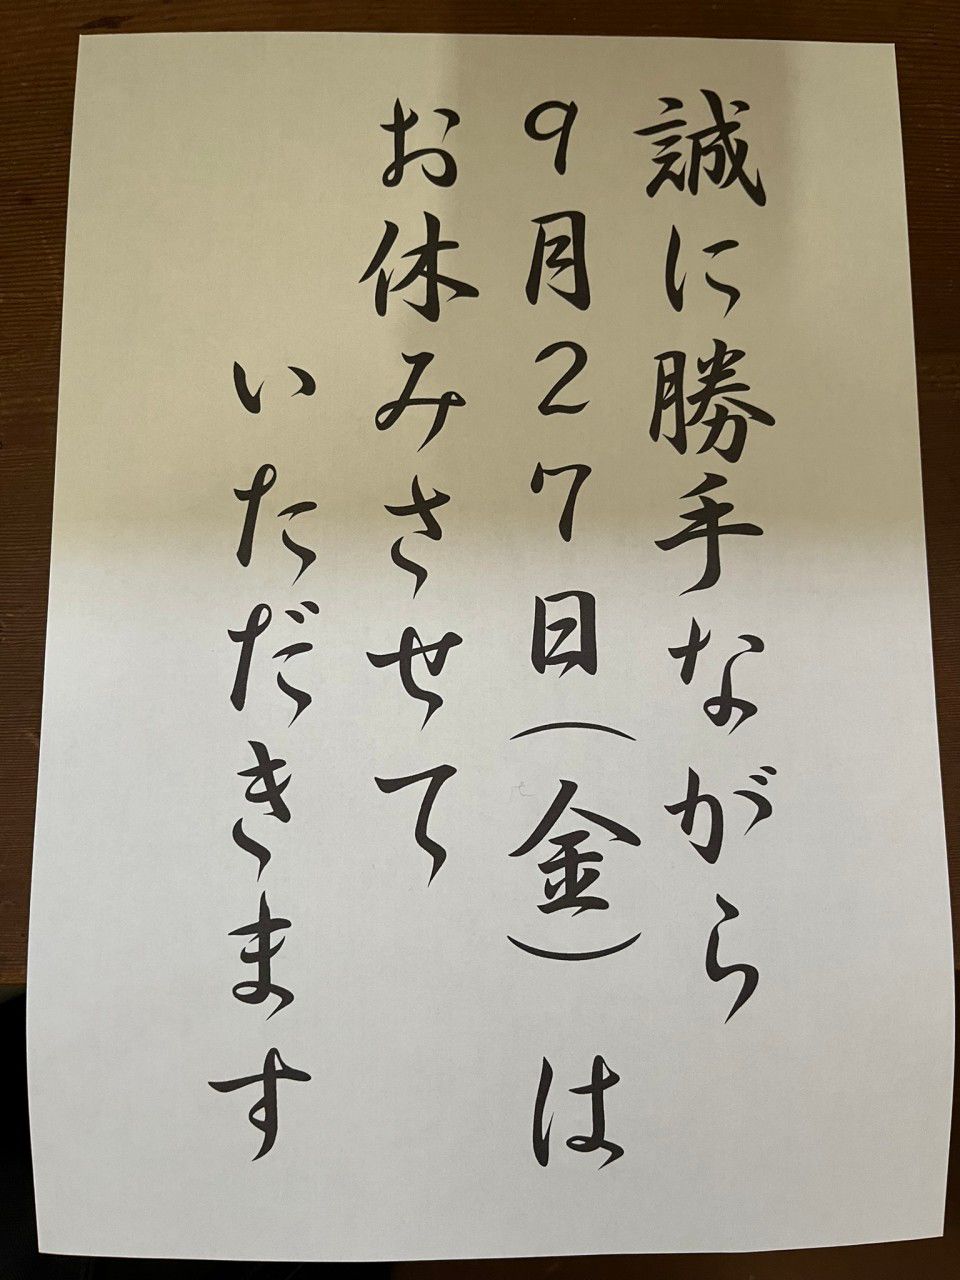 誠に勝手ながら
9月27日(金)は
お休みさせて
いただきます